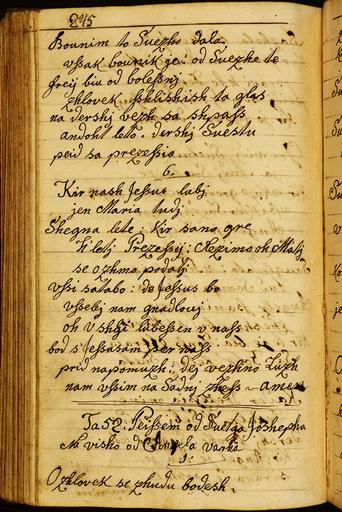 245
Bounim to Suezho dala
vssak bounik je: od Suezhe te
freij biu od bolessnj
zhlovek isshlishish ta glas
na dershj vezh sa shpass
andoht leto. dershj Suestu
peid sa prezessio
6.
Kir nash Jessus lubj
jen Maria tudj
Shegna lete, kir sano gre
Ti letj Prezessij: Rezimo oh Matj
se ozhmo podatj
vssi satabo: de Jessus bo
vsselej nam gnadlouj
oh lubessen v nass
bod s Jessasam per nass
prid napomuzh: dej vezhno Luzh
nam vssim na Sadnj zhess - amen
Ta 52. Peissem od Suetga Joshepha
Na visho od Angela varha
1.
O zhlovek se zhudu bodesh.